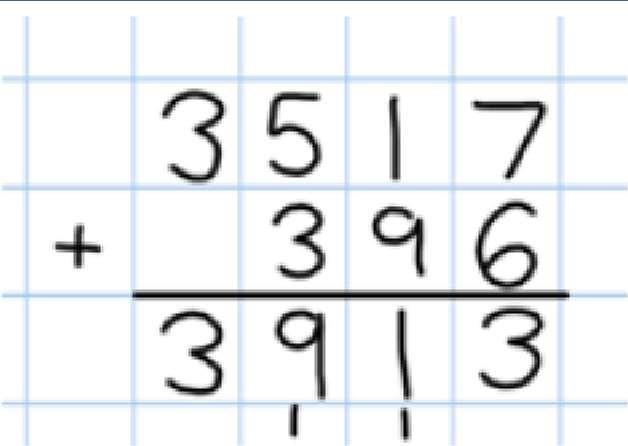 3517
+ 396
3913
11